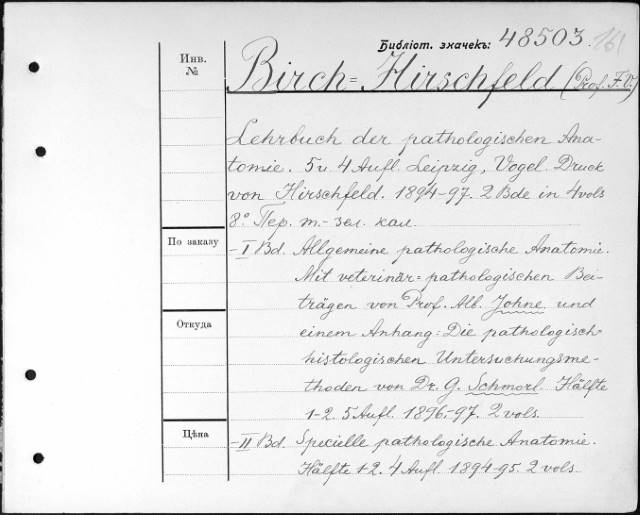 Библіот. значекъ: 48503. 161
Инв. №
Birch=Hirschfeld (Prof. F. V.)
Lehrbuch der pathologischen Ana-
tomie. 5 u 4 Aufl. Leipzig, Vogel. Druck
von Hirschfeld. 1894-97. 2 Bde in 4 vols
8° Пер. т.-зел. кал.
По заказу
- I Bd. Allgemeine pathologische Anatomie.
Mit veterinär=pathologischen Bei-
trägen von Prof. Alb. Johne und
Откуда
einem Anhang: Die pathologisch-
histologischen Untersuchungsme-
thoden von Dr. G. Schmorl. Hälfte
1-2. 5 Aufl. 1896-97. 2 vols.
Цѣна
- II Bd. Specielle pathologische Anatomie.
Hälfte 1-2. 4 Aufl. 1894-95. 2 vols.